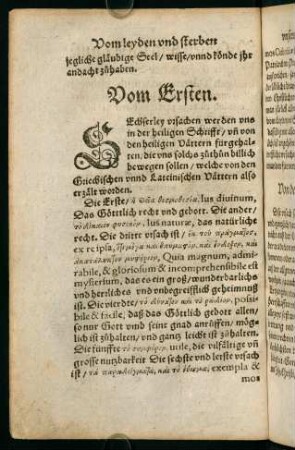 Vom leyden vnd sterben
jegliche gläubige Seel / wisse / vnnd könde jhr
andacht zůhaben.
Vom Ersten.
SEchserley vrsachen werden vns
in der heiligen Schrifft / vñ von
den heiligen Vättern fürgehal-
ten, die vns solchs zůthůn billich
bewegen sollen / welche von den
Griechischen vnnd Lateinischen Vättern also
erzält worden.
Die Erste / ἡ θεῖα θεσμοθεσία, Ius diuinum,
Das Göttlich recht vnd gebott. Die ander /
τὸ δίκαιον φυσικὸν, Ius naturæ, das natürliche
recht. Die dritte vrsach ist / ἐκ τοῦ πράγματος,
ex re ipsa,
Quia magnum, admi-
rabile, & gloriosum & incomprehensibile est
mysterium, das es ein groß / wunderbarlichs
vnd herrlichs vnd vnbegreifflich geheimnuß
ist. Die vierdte / τὸ δύνατον καὶ τὸ ῥᾴδιον, possi-
bile & facile, daß das Göttlich gebott allen /
so nur Gott vmb seint gnad anrůffen / müg-
lich ist zůhalten / vnd gantz leicht ist zůhalten.
Die fünffte τὸ συμφέρον, vtile, die vilfältige vñ
grosse nutzbarkeit. Die sechste vnd letste vrsach
ist / τὰ παραδείγματα, καὶ τὸ exempla &
mo-